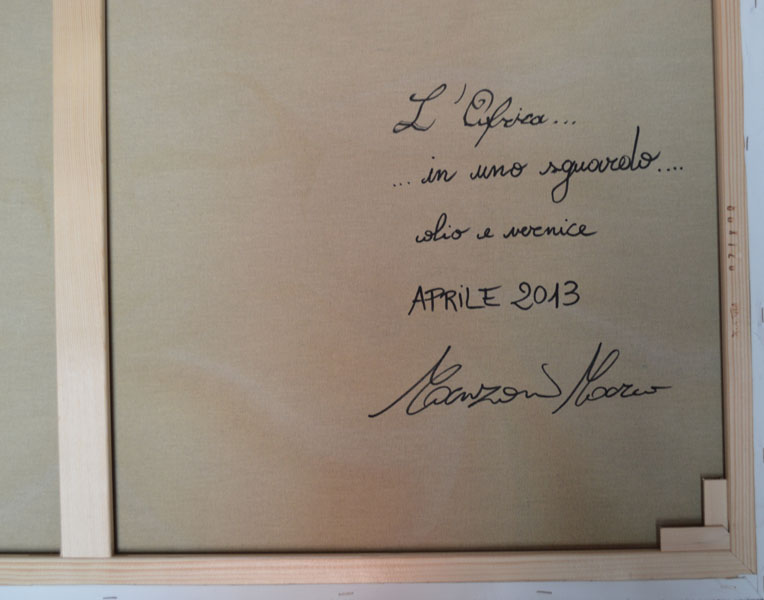 L'Africa...
...in uno sguardo....
olio e vernice
APRILE 2013
Manzoni Mario